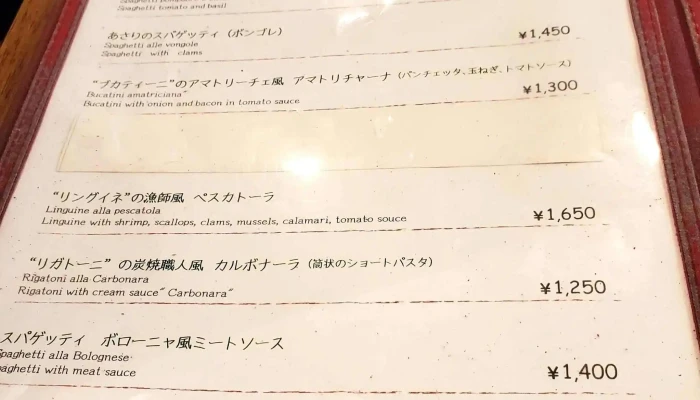 Spaghetti tomato and basil
あさりのスパゲッティ（ボンゴレ）
Spaghetti alle vongole
Spaghetti with clams
¥1,450
“ブカティーニ”のアマトリーチェ風 アマトリチャーナ（パンチェッタ、玉ねぎ、トマトソース）
Bucatini amatriciana"
Bucatini with onion and bacon in tomato sauce
¥1,300
“リングイネ”の漁師風 ペスカトーラ
Linguine alla pescatola
Linguine with shrimp, scallops, clams, mussels, calamari, tomato souce
¥1,650
“リガトーニ” の炭焼職人風 カルボナーラ（筒状のショートパスタ）
Rigatoni alla Carbonara
Rigatoni with cream sauce" Carbonara"
¥1,250
スパゲッティ ボローニャ風ミートソース
paghetti alla Bolognese
aghetti with meat sauce
¥1,400